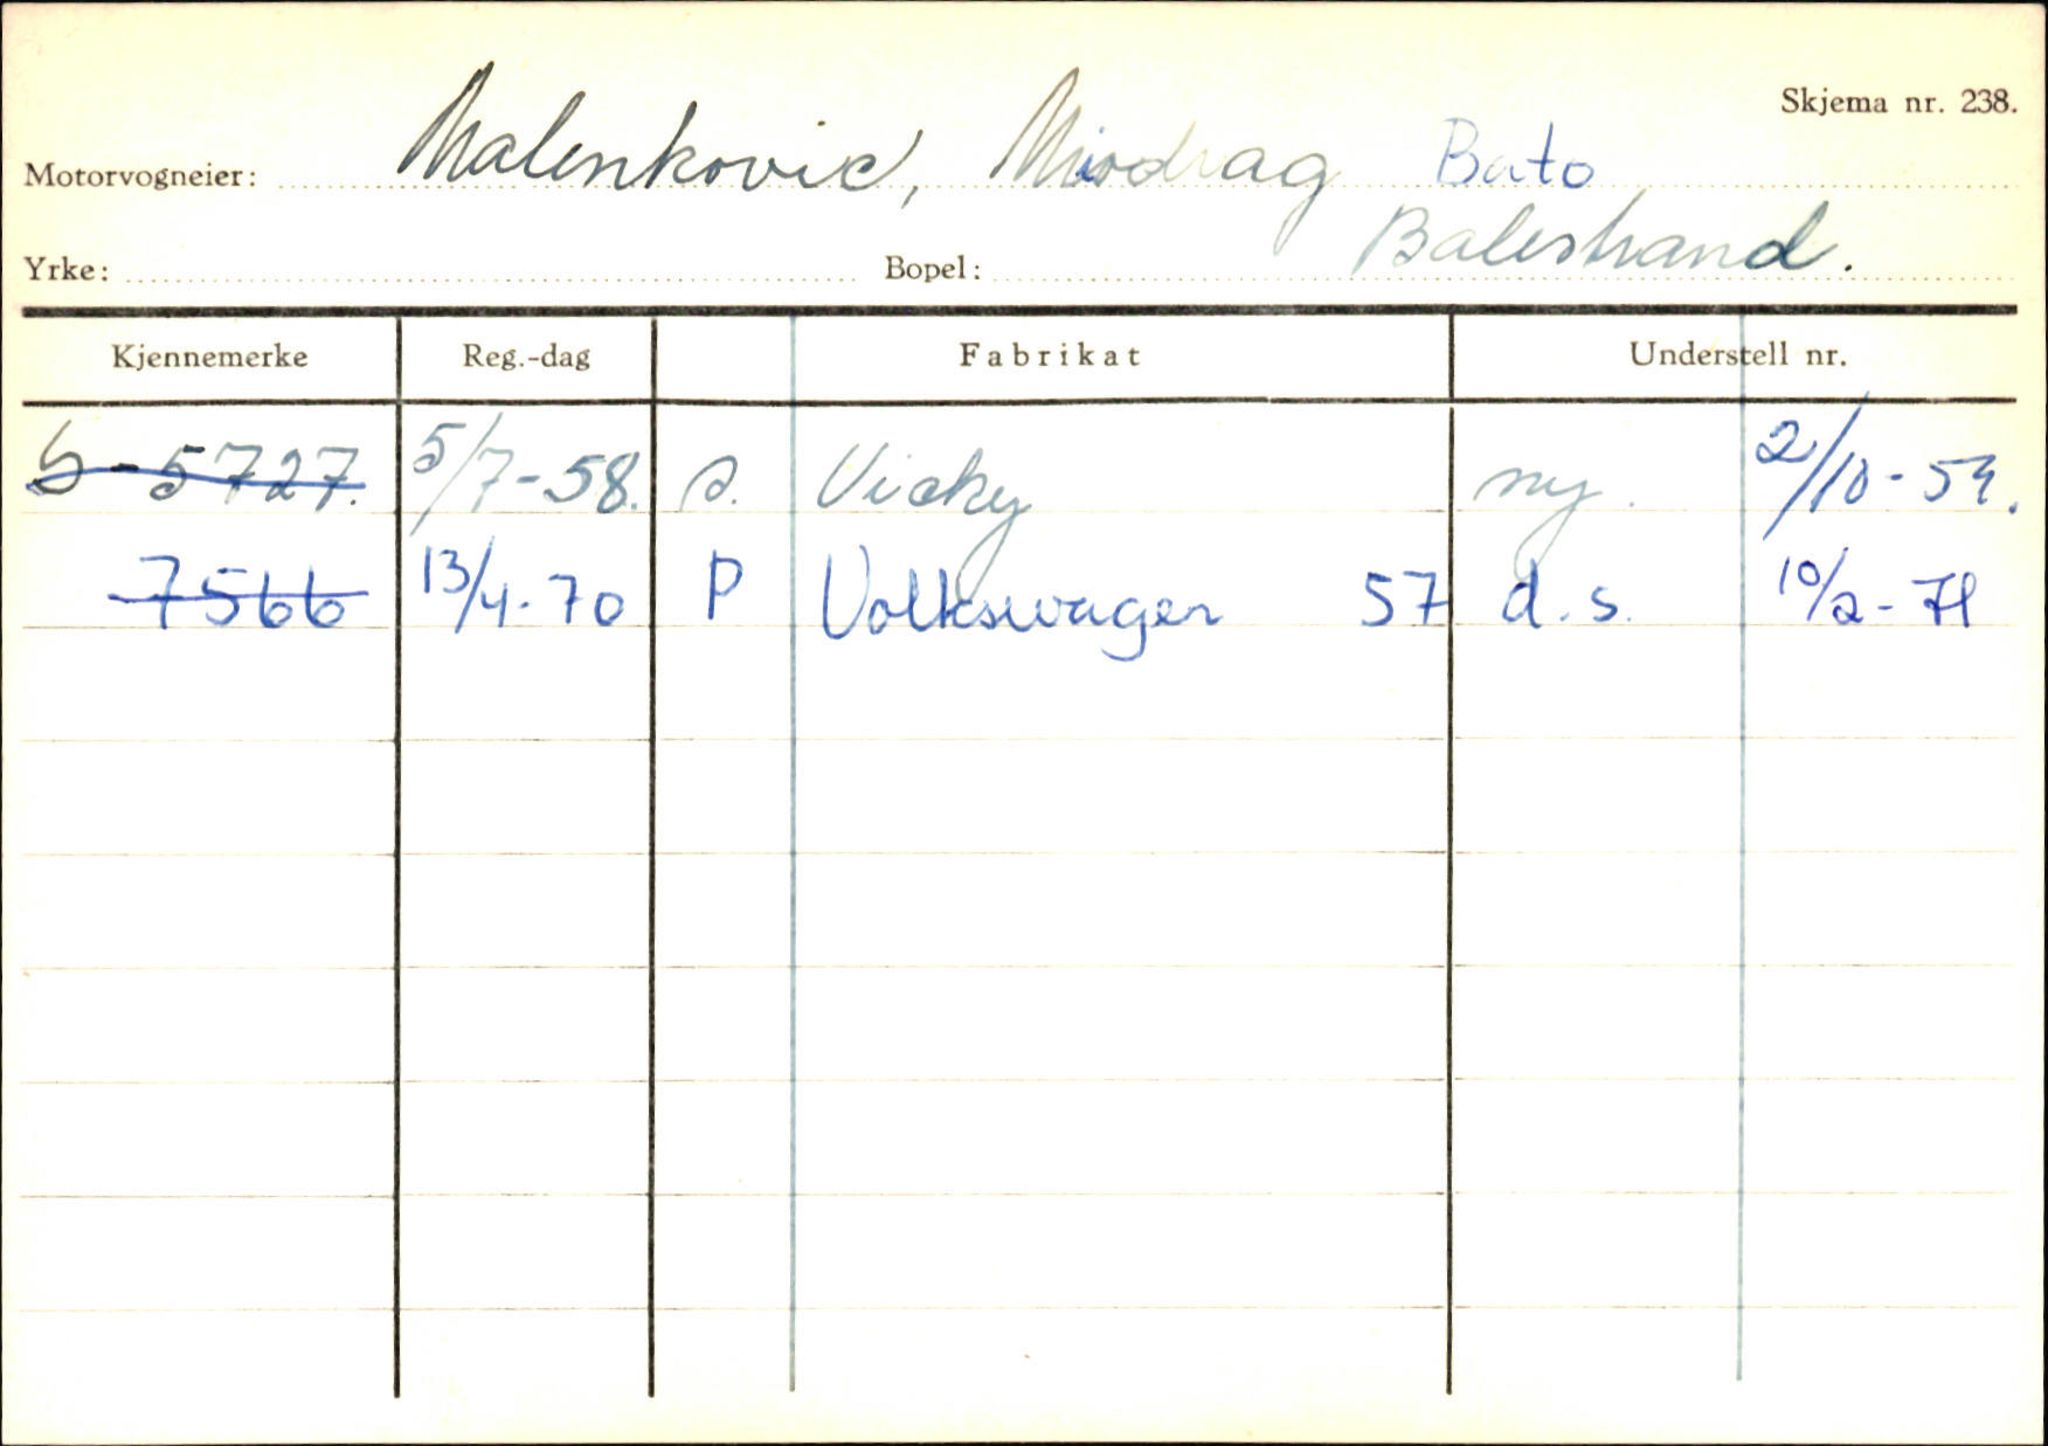 Skjema nr. 238.
Motorvogneier: Malenkovic, Miodrag Bato
Yrke: Bopel: Balestrand.
Kjennemerke Reg.-dag Fabrikat Understell nr.
S-5727. 5/7-58. s. Vicky ny. 2/10-59.
7566 13/4-70 P Volkswagen 57 d.s. 10/2-71